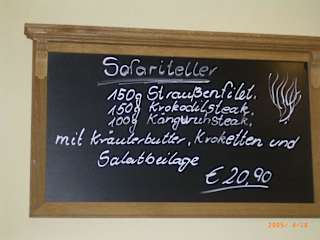 Safariteller
150g Straußenfilet,
150g Krokodilsteak,
100g Känguruhsteak,
mit Kräuterbutter, Kroketten und
Salatbeilage
€ 20,90